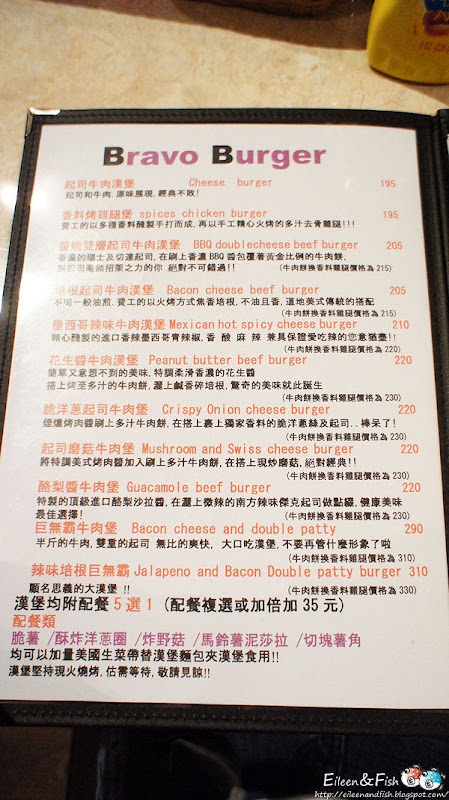 Bravo Burger
起司牛肉漢堡 Cheese burger 195
起司和牛肉,原味展現,經典不敗!
香料烤雞腿堡 spices chicken burger 195
費工的以多種香料醃製手打而成,再以手工精心火烤的多汁去骨雞腿!!!
醬燒雙層起司牛肉漢堡 BBQ doublecheese beef burger 205
香濃的瑞士及切達起司,在刷上香濃 BBQ 醬包覆著黃金比例的牛肉餅,
對起司毫無招架之力的你 絕對不可錯過!! (牛肉餅換香料雞腿價格為 215)
培根起司牛肉漢堡 Bacon cheese beef burger 205
不同一般油煎,費工的以火烤方式焦香培根,不油且香,道地美式傳統的搭配
(牛肉餅換香料雞腿價格為215)
墨西哥辣味牛肉漢堡 Mexican hot spicy cheese burger 210
精心醃製的進口香辣墨西哥青辣椒,香 酸 麻 辣 兼具保證愛吃辣的您意猶盡!!
(牛肉餅換香料雞腿價格為 220)
花生醬牛肉漢堡 Peanut butter beef burger 220
簡單又意想不到的美味,特調柔滑香濃的花生醬
搭上烤至多汁的牛肉餅,灑上鹹香碎培根,驚奇的美味就此誕生
(牛肉餅換香料雞腿價格為 230)
脆洋蔥起司牛肉堡 Crispy Onion cheese burger 220
煙燻烤肉醬刷上多汁牛肉餅,在搭上裹上獨家香料的脆洋蔥絲及起司..棒呆了!
(牛肉餅換香料雞腿價格為 230)
起司磨菇牛肉堡 Mushroom and Swiss cheese burger 220
將特調美式烤肉醬加入刷上多汁牛肉餅,在搭上現炒磨菇,絕對經典!!
(牛肉餅換香料雞腿價格為 230)
酪梨醬牛肉堡 Guacamole beef burger 220
特製的頂級進口酪梨沙拉醬,在灑上微辣的南方辣味傑克起司做點綴,健康美味
最佳選擇! (牛肉餅換香料雞腿價格為 230)
巨無霸牛肉堡 Bacon cheese and double patty 290
半斤的牛肉,雙重的起司 無比的爽快, 大口吃漢堡,不要再管什麼形象了啦
(牛肉餅換香料雞腿價格為 310)
辣味培根巨無霸 Jalapeno and Bacon Double patty burger 310
顧名思義的大漢堡 !! (牛肉餅換香料雞腿價格為 330)
漢堡均附配餐 5 選 1 (配餐複選或加倍加 35 元)
配餐類
脆薯 /酥炸洋蔥圈 /炸野菇 /馬鈴薯泥莎拉 /切塊薯角
均可以加量美國生菜帶替漢堡麵包夾漢堡食用!!
漢堡堅持現火燒烤,估需等待,敬請見諒!!
Eileen&Fish
http://eileenandfish.blogspot.com/